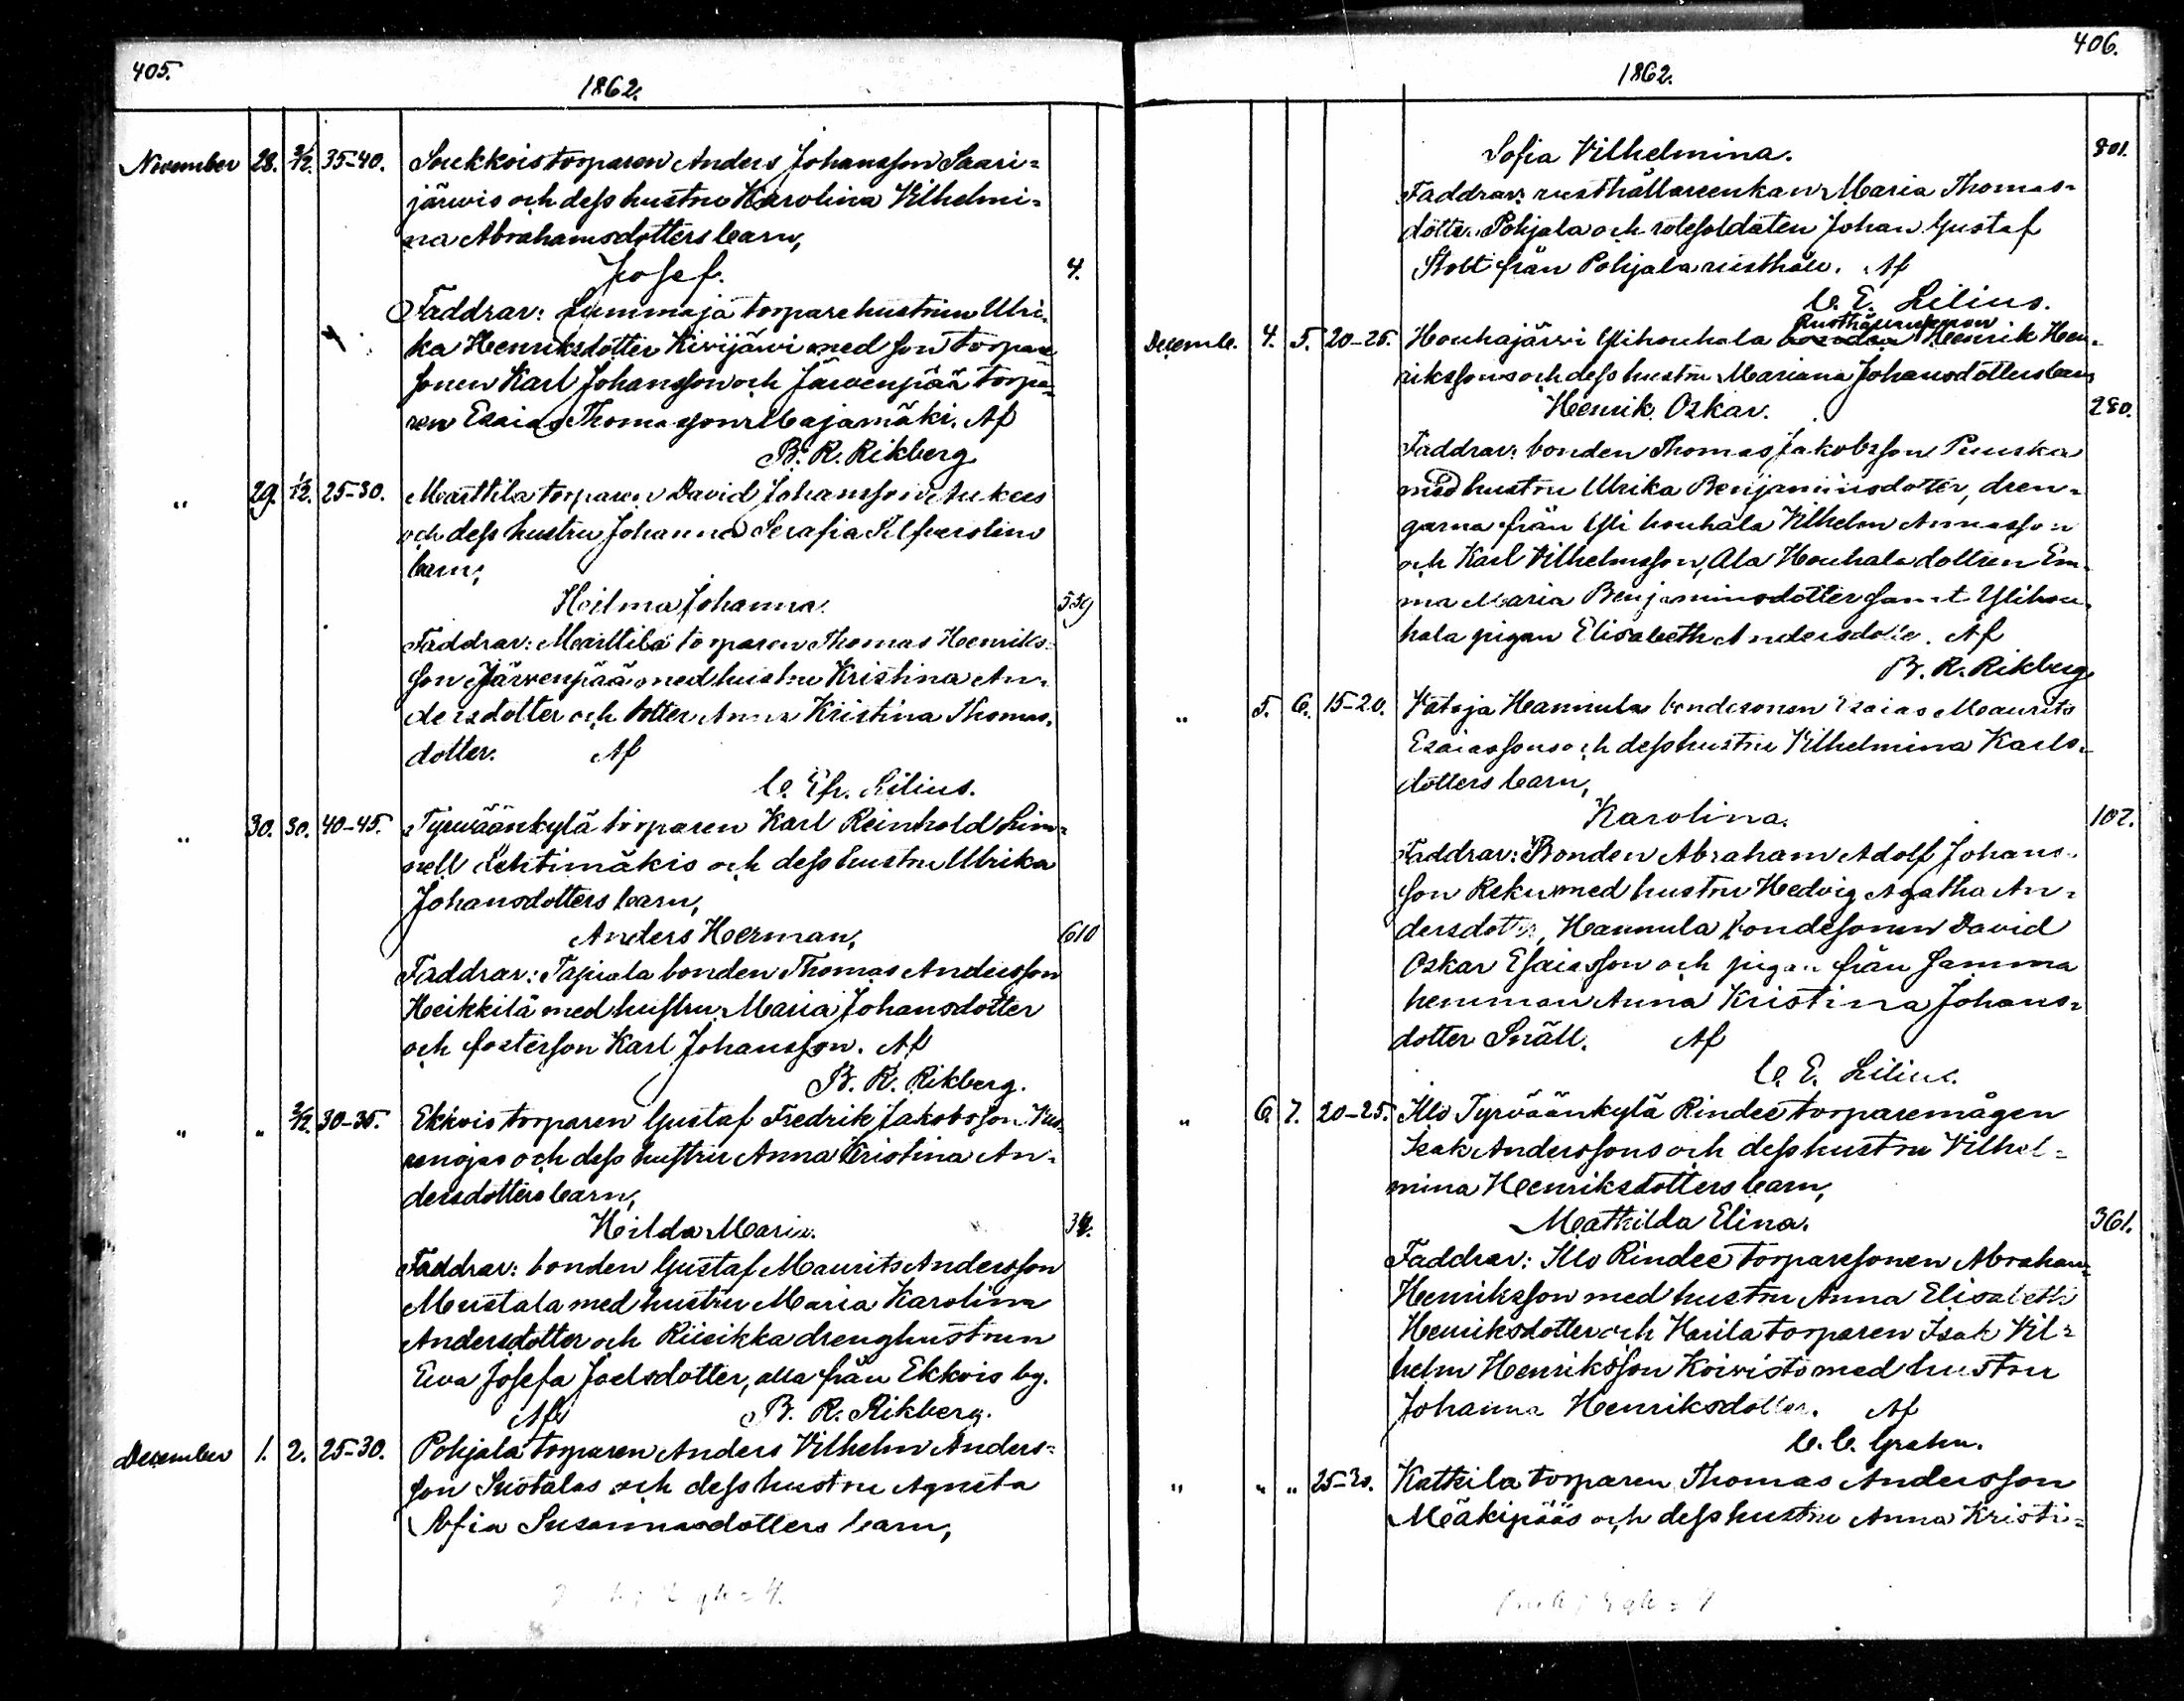 405.
1862.
November 28. 2/12. 35-40. Soukkois torparen Anders Johansson Saari=
järwis och dess hustru Karolina Vilhelmi=
na Abrahamsdotters barn,
Josef. 4.
Faddrar: Lummaja torparehustrun Ulri=
ka Henriksdotter Kivijärvi med son torpare
sonen Karl Johansson och Järvenpää torpa=
ren Esaias Thomasson Majamäki. Af
B. R. Rikberg
" 29. 1/12. 25-30. Marttila torparen David Johansson
och dess hustru Johanna Serafia Silfverolins
barn,
Hilma Johanna. 559
Faddrar: Marttila torparen Thomas Henriks=
son Järvenpää med hustru Kristina An=
dersdotter och dotter Anna Kristina Thomas=
dotter. Af
C. Efr. Lilius.
" 30. 30. 40-45. Tyrväänkylä torparen Karl Reinhold Lin=
nell Lehtimäkis och dess hustru Ulrika
Johansdotters barn,
Anders Herman, 610
Faddrar: Tapiala bonden Thomas Andersson
Heikkilä med hustru Maria Johansdotter
och fosterson Karl Johansson. Af
B. R. Rikberg.
" " 2/12. 30-35. Ekkois torparen Gustaf Fredrik Jakobsson
och dess hustru Anna Kristina An=
dersdotters barn,
Hilda Maria.
Faddrar: bonden Gustaf Maurits Andersson
Mustala med hustru Maria Karolina
Andersdotter och Riieikka drenghustrun
Eva Josefa Joelsdotter, alla från Ekkois by.
Af B. R. Rikberg.
December 1. 2. 25-30. Pohjala torparen Anders Vilhelm Anders=
son Suotalas och dess hustru Agneta
Sofia Susannasdotters barn,
406.
1862.
Sofia Vilhelmina. 801.
Faddrar: rusthållareenkan Maria Thomas=
dotter Pohjala och rotesoldaten Johan Gustaf
Stolt från Pohjala rusthåll. Af
C. E. Lilius.
Decemb. 4. 5. 20-25. Houhajärvi Ylihouhala Henrik Hen=
rikssons och dess hustru Mariana Johansdotters barn
Henrik Oskar. 280.
Faddrar: bonden Thomas Jakobsson Punska
med hustru Ulrika Benjaminsdotter, dren=
garna från Yli houhala Vilhelm Annasson
och Karl Vilhelmsson, Ala Houhala dottren Em=
ma Maria Benjaminsdotter samt Ylihou=
hala pigan Elisabeth Andersdotter. Af
B. R. Rikberg
" 5. 6. 15-20. Vataja Hannula bondesonen Esaias Maurits
Esaiassons och dess hustru Vilhelmina Karls=
dotters barn,
Karolina. 107.
Faddrar: Bonden Abraham Adolf Johans=
son Reku med hustru Hedvig Agatha An=
dersdotter, Hannula bondesonen David
Oskar Esaiasson och pigan från samma
hemman Anna Kristina Johans=
dotter Snäll. Af
C. E. Lilius.
" 6. 7. 20-25. Illo Tyrväänkylä Rindee torparemågen
Isak Anderssons och dess hustru Vilhel=
mina Henriksdotters barn,
Mathilda Elina. 361.
Faddrar: Illo Rindee torparesonen Abraham
Henriksson med hustru Anna Elisabeth
Henriksdotter och Harila torparen Isak Vil=
helm Henriksson Koivisto med hustru
Johanna Henriksdotter. Af
C. C. Grahn.
" " " 25-30. Kattila torparen Thomas Andersson
Mäkipääs och dess hustru Anna Kristi=